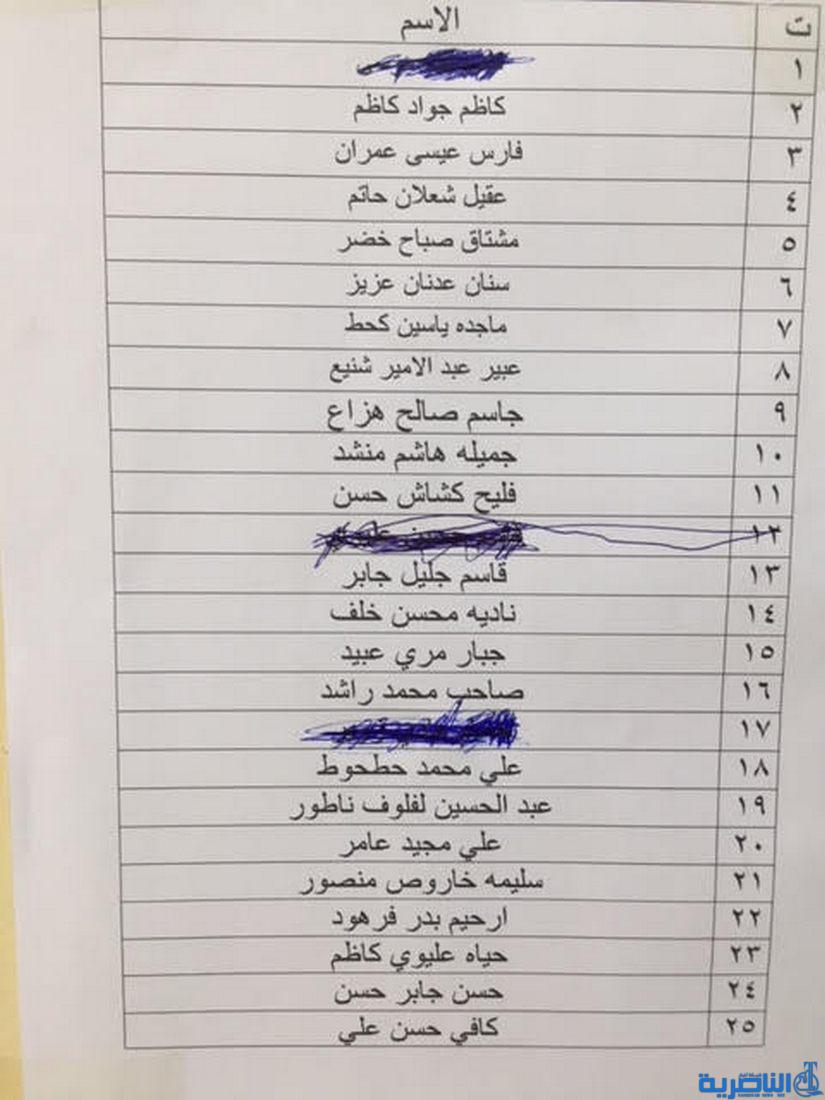 ت الاسم
١
٢ كاظم جواد كاظم
٣ فارس عيسى عمران
٤ عقيل شعلان حاتم
٥ مشتاق صباح خضر
٦ سنان عدنان عزيز
٧ ماجده ياسين كحط
٨ عبير عبد الامير شنيع
٩ جاسم صالح هزاع
١٠ جميله هاشم منشد
١١ فليح كشاش حسن
١٢
١٣ قاسم جليل جابر
١٤ ناديه محسن خلف
١٥ جبار مري عبيد
١٦ صاحب محمد راشد
١٧
١٨ علي محمد حطحوط
١٩ عبد الحسين لفلوف ناطور
٢٠ علي مجيد عامر
٢١ سليمه خاروص منصور
٢٢ ارحيم بدر فرهود
٢٣ حياه عليوي كاظم
٢٤ حسن جابر حسن
٢٥ كافي حسن علي
الناصرية